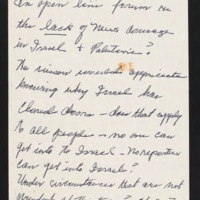 an open line forum on
the lack of News coverage
in Israel & Palestine?
The union would appreciate
knowing why Israel has
Closed doors - does that apply
to all people - no one can
get into to Israel - no reporters
can get into Israel?
Under circumstances that are not